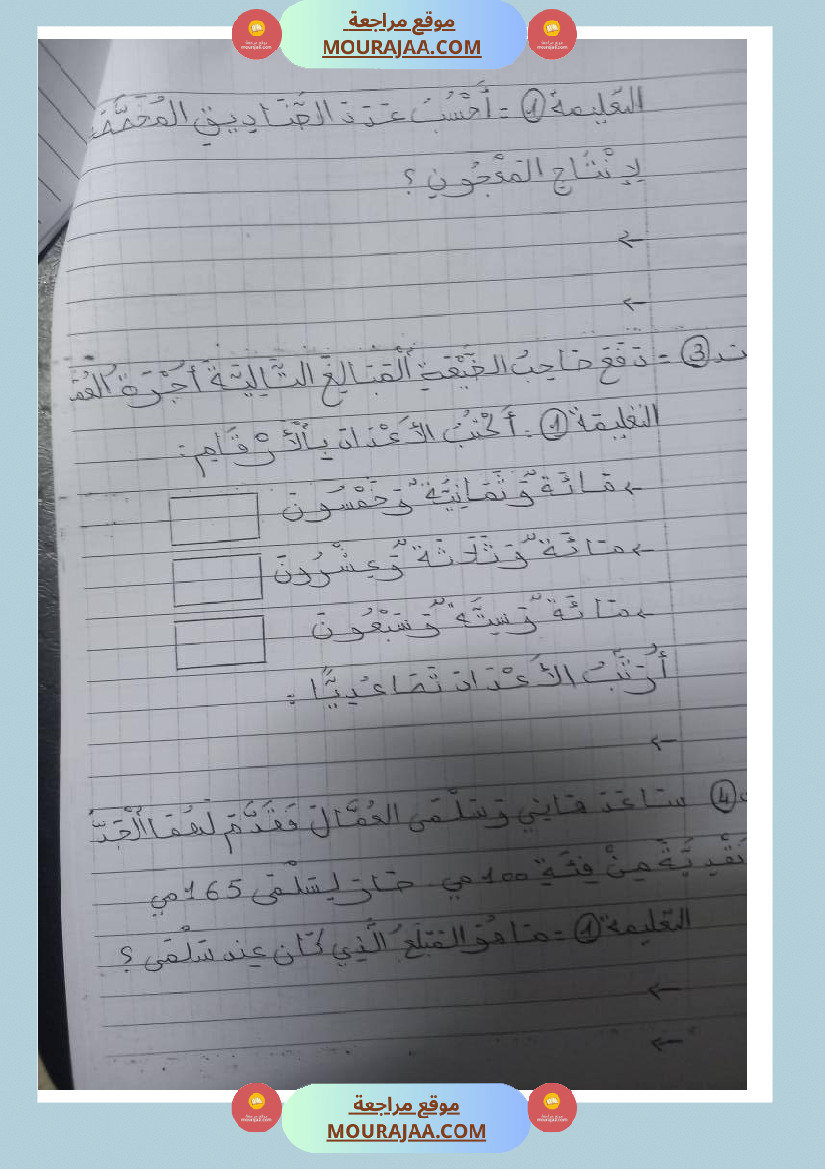 موقع مراجعة
MOURAJAA.COM
التعليمة 1 = أَحْسُبُ عَدَدَ الصَّنَادِيقِ المُخَصَّصَةِ
لِإِنْتَاجِ المَعْجُونِ ؟
←
←
3 = دَفَعَ صَاحِبُ الضَّيْعَةِ الْمَبَالِغَ التَّالِيَةَ أُجْرَةَ
التعليمة 1 = أَكْتُبُ الأَعْدَادَ بِالْأَرْقَامِ :
← مَائَةٌ وَثَمَانِيَةٌ وَخَمْسُونَ
← مَائَةٌ وَثَلَاثَةٌ وَعِشْرُونَ
← مَائَةٌ وَسِتَّةٌ وَسَبْعُونَ
أُرَتِّبُ الأَعْدَادَ تَصَاعُدِيًّا :
←
4 سَاعَدَ هَاني وَسَلْمَى العُمَّالَ فَقَدَّمَ لَهُمَا الْجَدُّ
نَقْدِيَّةً مِنْ فِئَةِ 100 مي صَارَ لِسَلْمَى 165 مي
التعليمة 1 = مَا هُوَ المَبْلَغُ الَّذِي كَانَ عِنْدَ سَلْمَى ؟
←
←
موقع مراجعة
MOURAJAA.COM